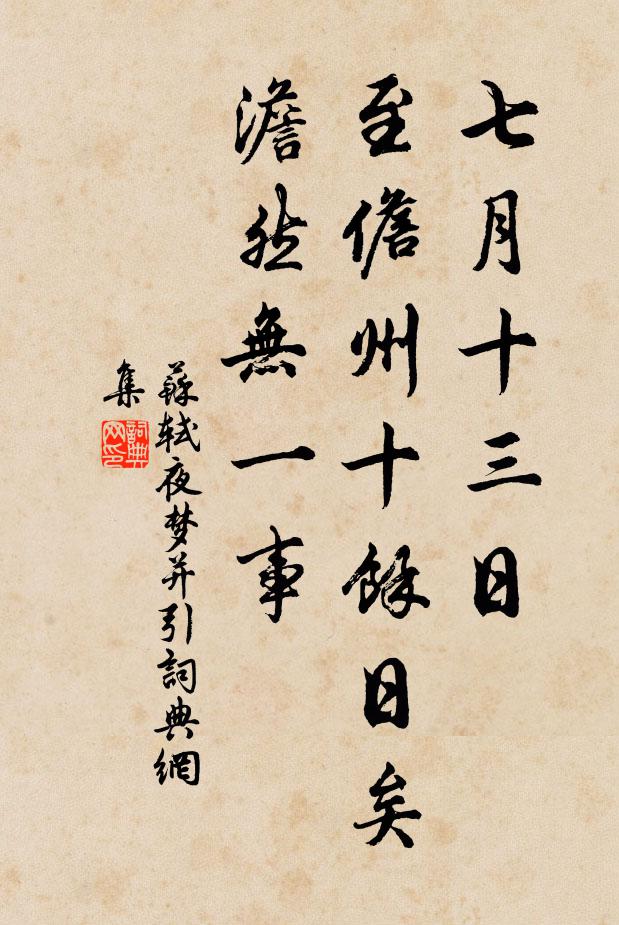 七月十三日
至儋州十餘日矣
澹然無一事
蘇軾夜梦并引詞典網
集
詞典
网印